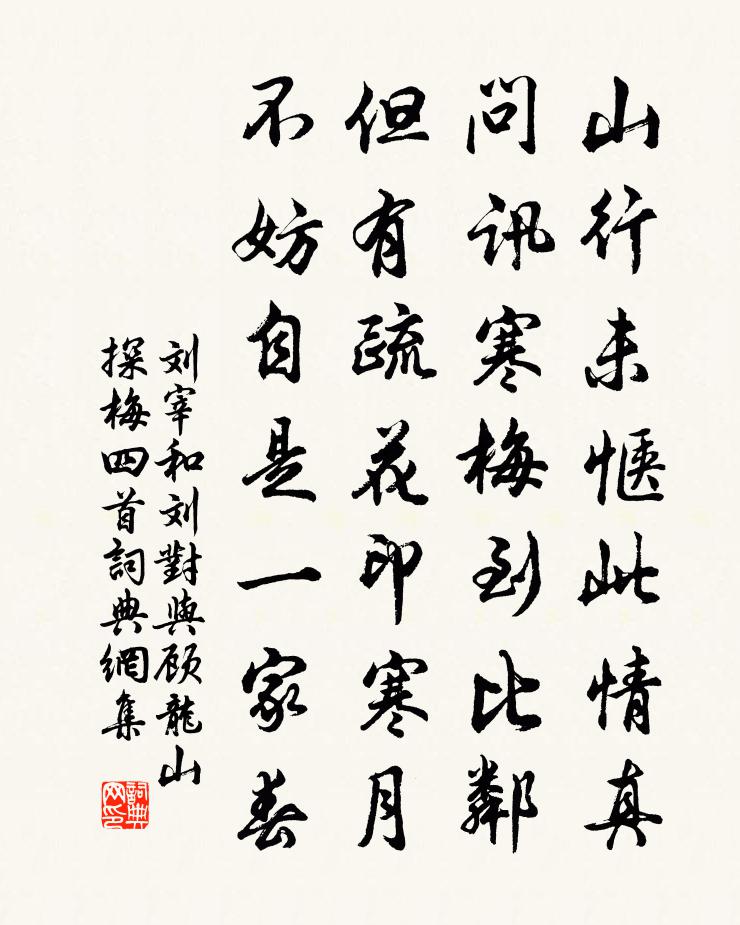 山行未惬此情真
问讯寒梅到比鄰
但有疏花印寒月
不妨自是一家春
刘宰和刘對與顾龍山
探梅四首詞典網集
詞典网印